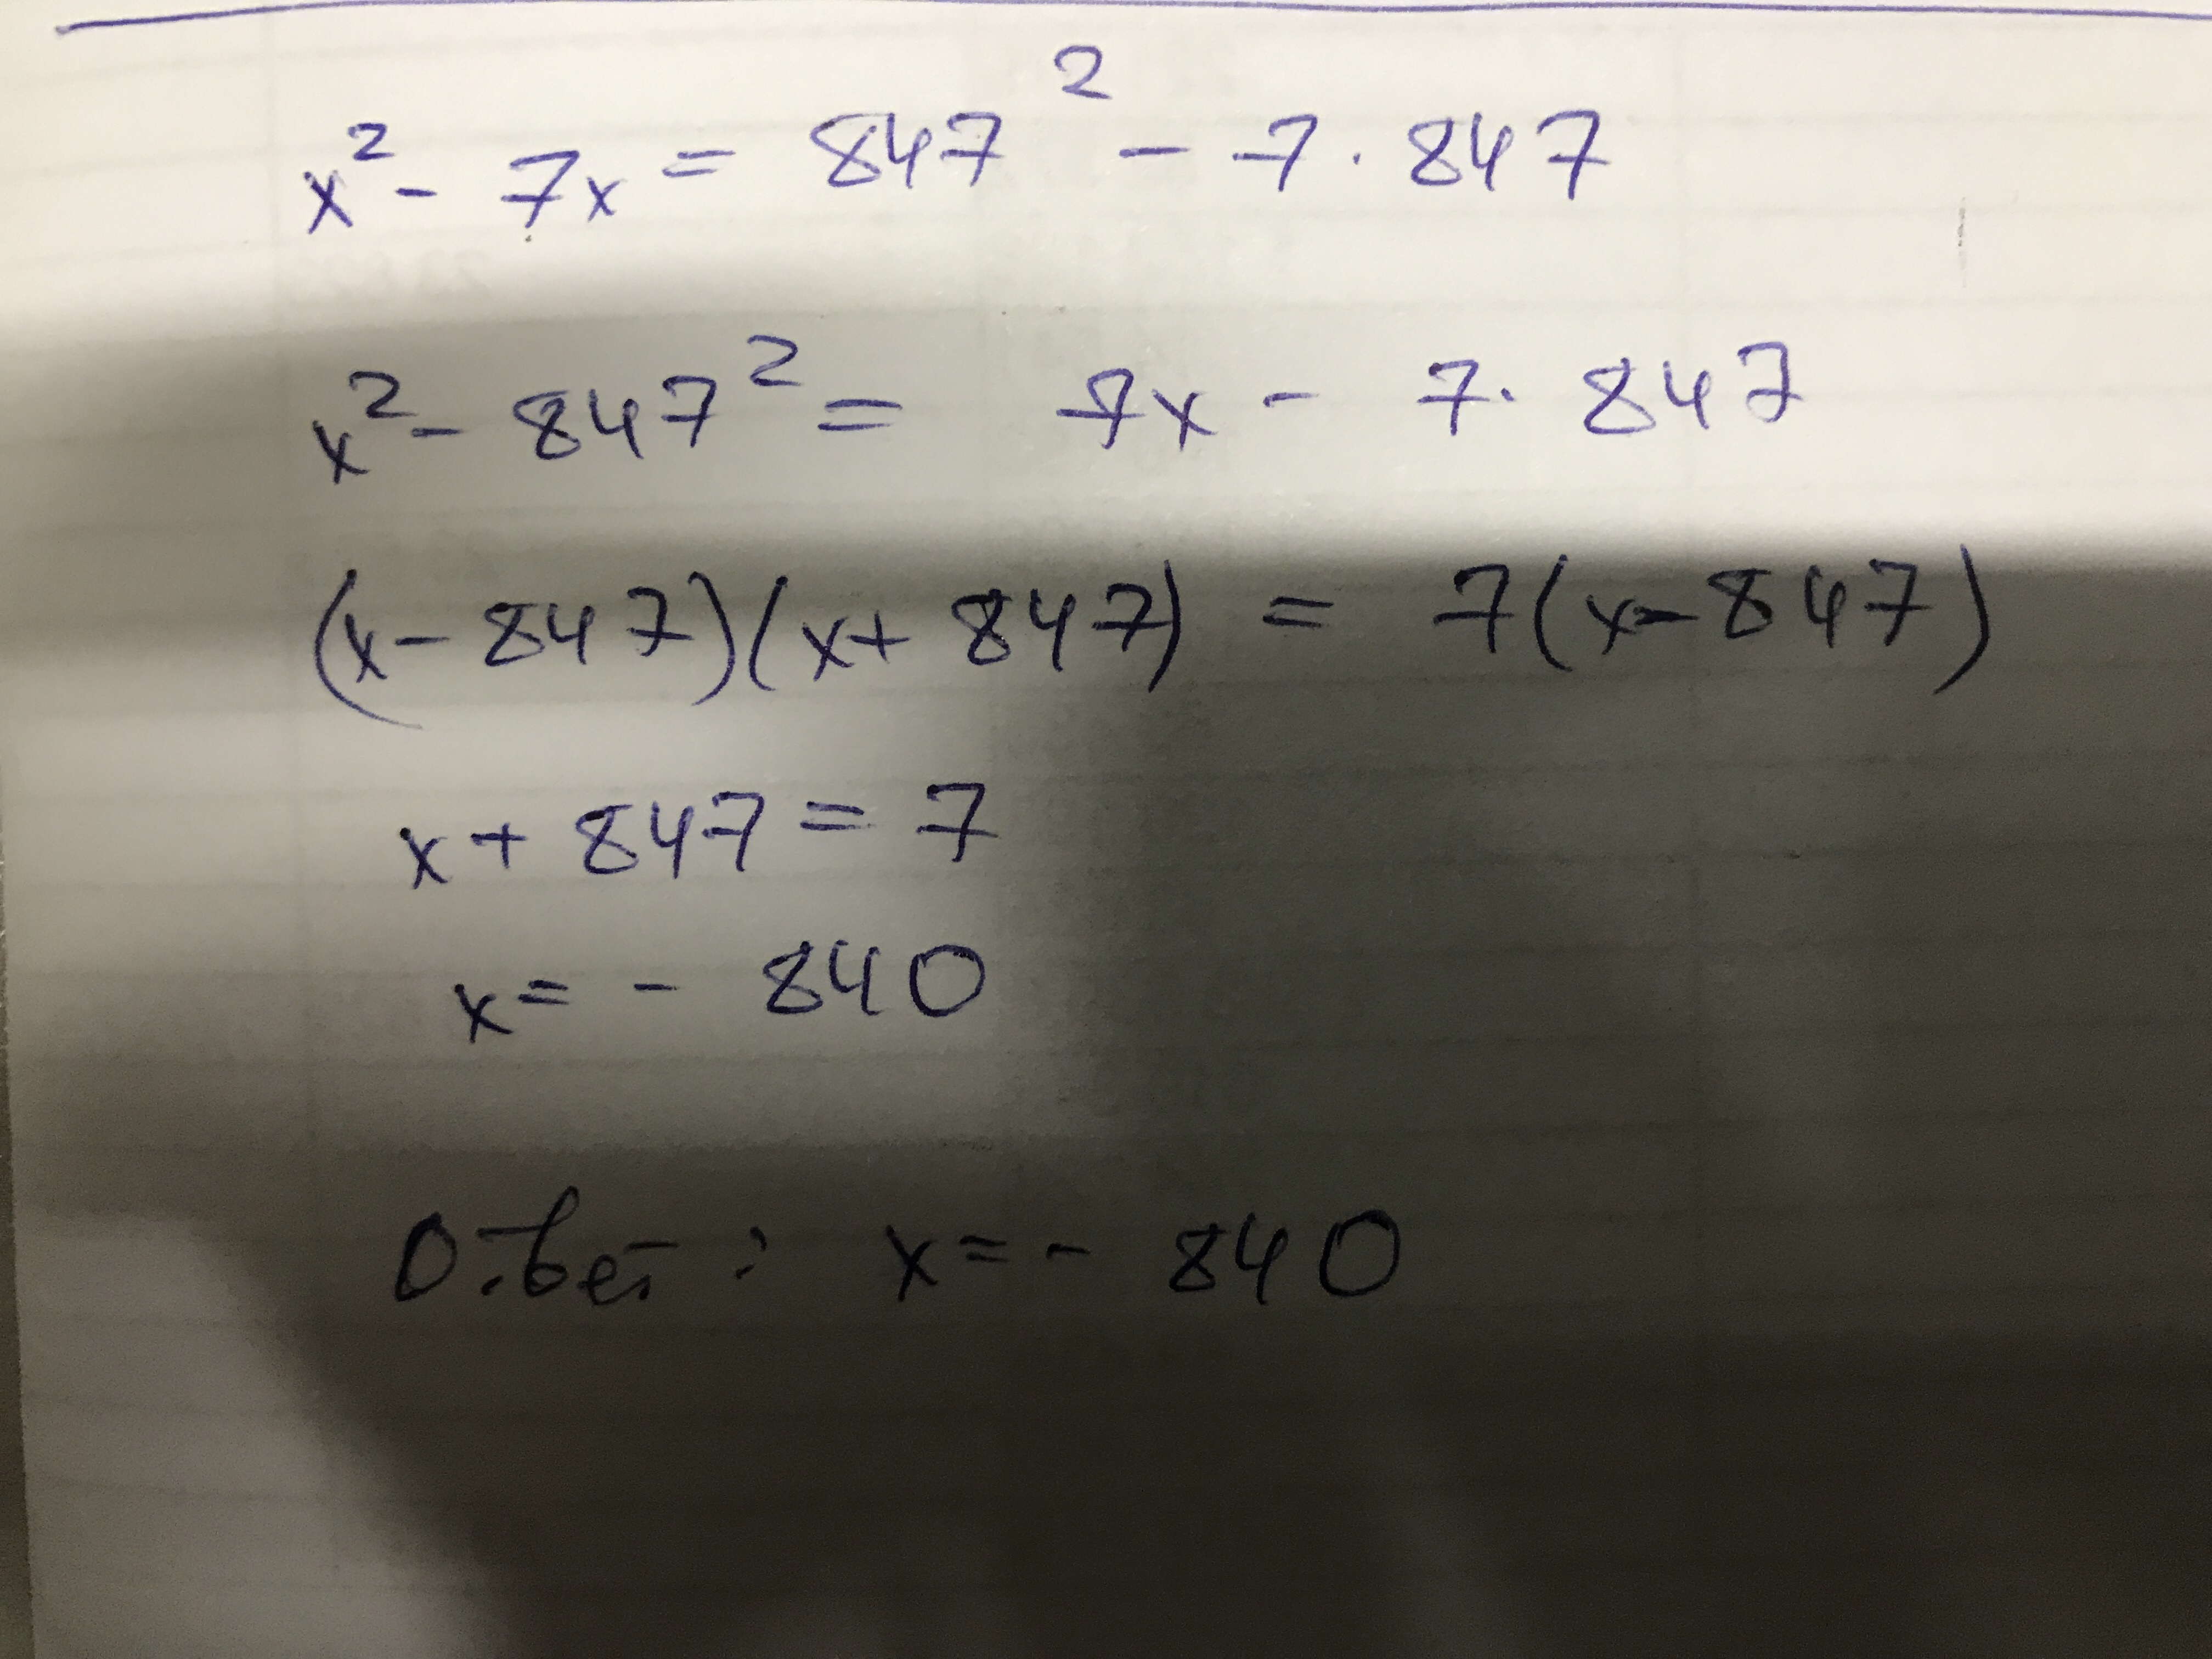 x² - 7x = 847² - 7·847
x² - 847² = 7x - 7·847
(x - 847)(x + 847) = 7(x - 847)
x + 847 = 7
x = - 840
Ответ: x = - 840